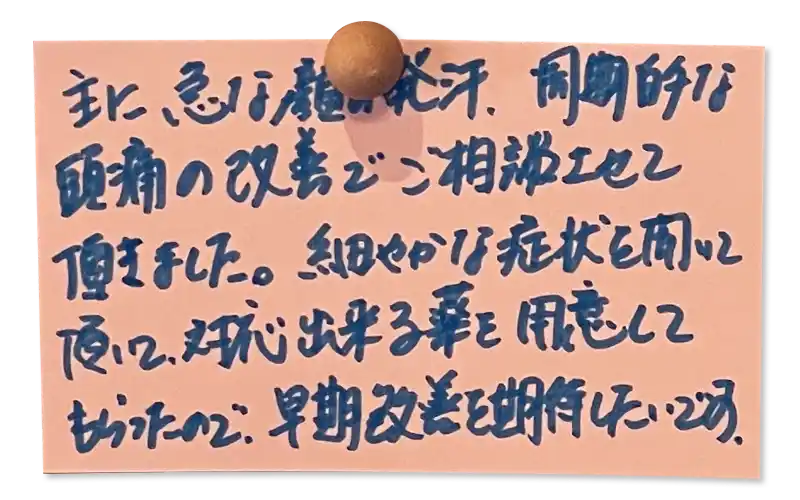 主に、急な顔の発汗、周期的な
頭痛の改善でご相談させて
頂きました。細やかな症状を聞いて
頂いて、対応出来る薬を用意して
もらったので、早期改善を期待したいです。